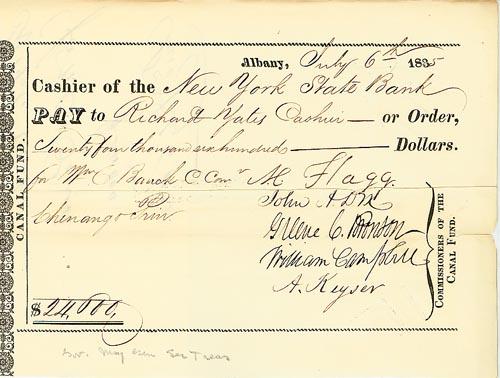 Albany, July 6th 1835
Cashier of the New York State Bank
PAY to Richard Yates Cashier or Order,
Twenty four thousand six hundred Dollars.
for Wm C. Bauck C. Comr A. C. Flagg.
Chenango John A Dix
Greene C. Bronson
William Campbell
A. Keyser
$24,600,
CANAL FUND.
COMMISSIONERS OF THE
CANAL FUND.
Gov. Sec Treas